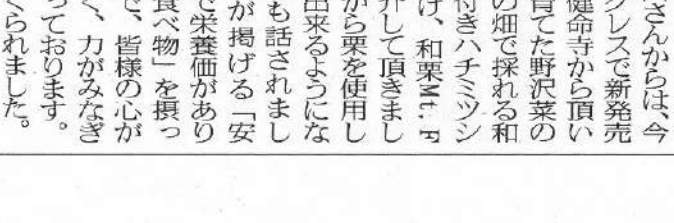 さんからは、今
グレスで新発売
健命寺から頂い
育てた野沢菜の
の畑で採れる和
付きハチミツシ
け、和栗Mt.F
介して頂きまし
から栗を使用し
出来るようにな
も話されまし
が掲げる「安
で栄養価があり
食べ物」を摂っ
で、皆様の心が
く、力がみなぎ
っております。
くられました。